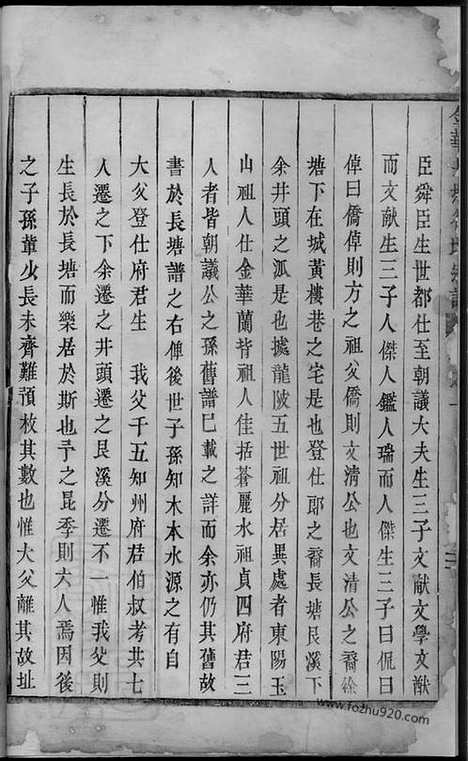 臣舜臣生世都仕至朝議大夫生三子文献文學文猷
而文献生三子人傑人鑑人瑞而人傑生三子曰侃曰
倬曰僑倬則方之祖父僑則文清公也文清公之裔徐
塘下在城黃樓巷之宅是也登仕郎之裔長塘艮溪下
余井頭之派是也攄龍陂五世祖分居異處者東陽玉
山祖人仕金華蘭皆祖人佳括蒼麗水祖貞四府君三
人者皆朝議公之孫舊譜已載之詳而余亦仍其舊故
書於長塘譜之右俾後世子孫知木本水源之有自
大父登仕府君生 我父千五知州府君伯叔考共七
人遷之下余遷之井頭遷之艮溪分遷不一惟我父則
生長於長塘而樂居於斯也予之昆季則六人焉因後
之子孫蕫少長未齊難預枚其數也惟大父離其故址
www.fozhu920.com